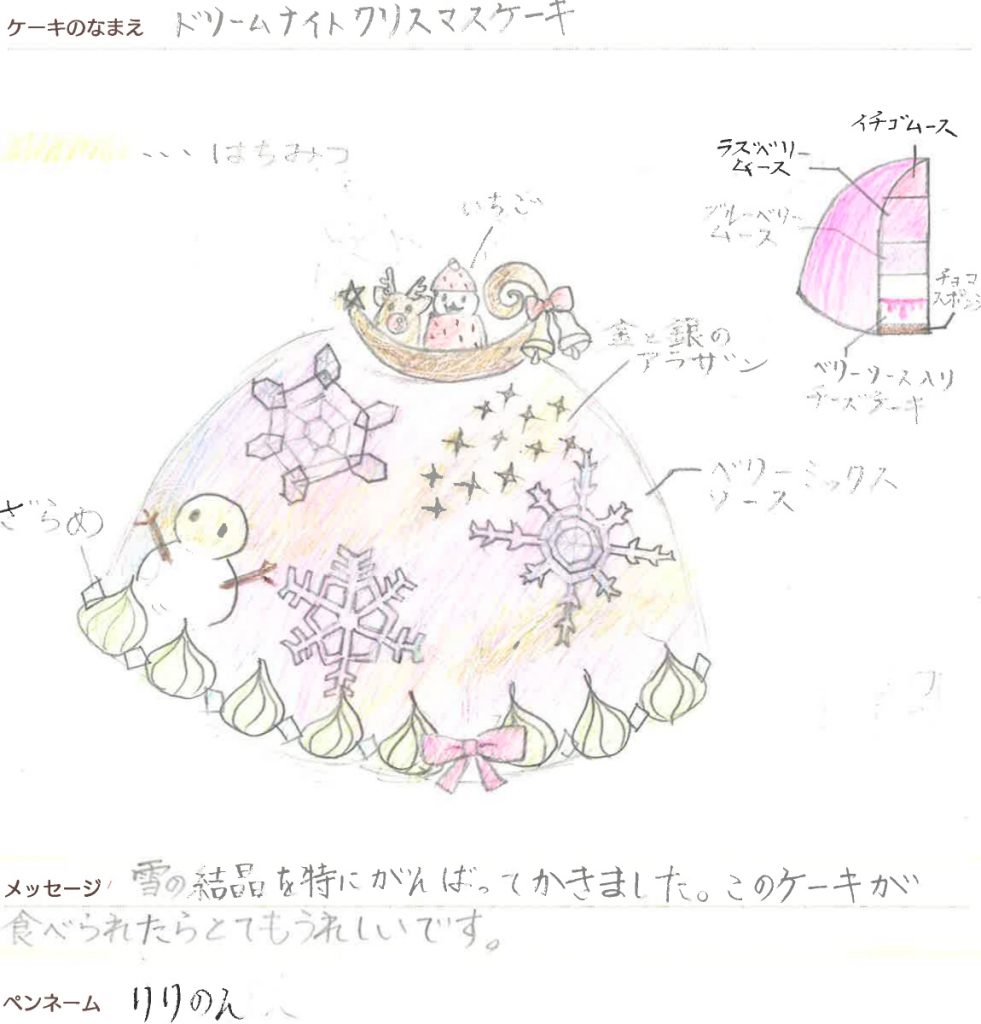 ケーキのなまえ ドリームナイトクリスマスケーキ
・・・はちみつ
イチゴムース
ラズベリー
ムース
ブルーベリー
ムース
チョコ
スポンジ
ベリーソース入り
チーズケーキ
いちご
金と銀の
アラザン
ベリーミックス
ソース
ざらめ
メッセージ 雪の結晶を特にがんばってかきました。このケーキが
食べられたらとてもうれしいです。
ペンネーム りりのん